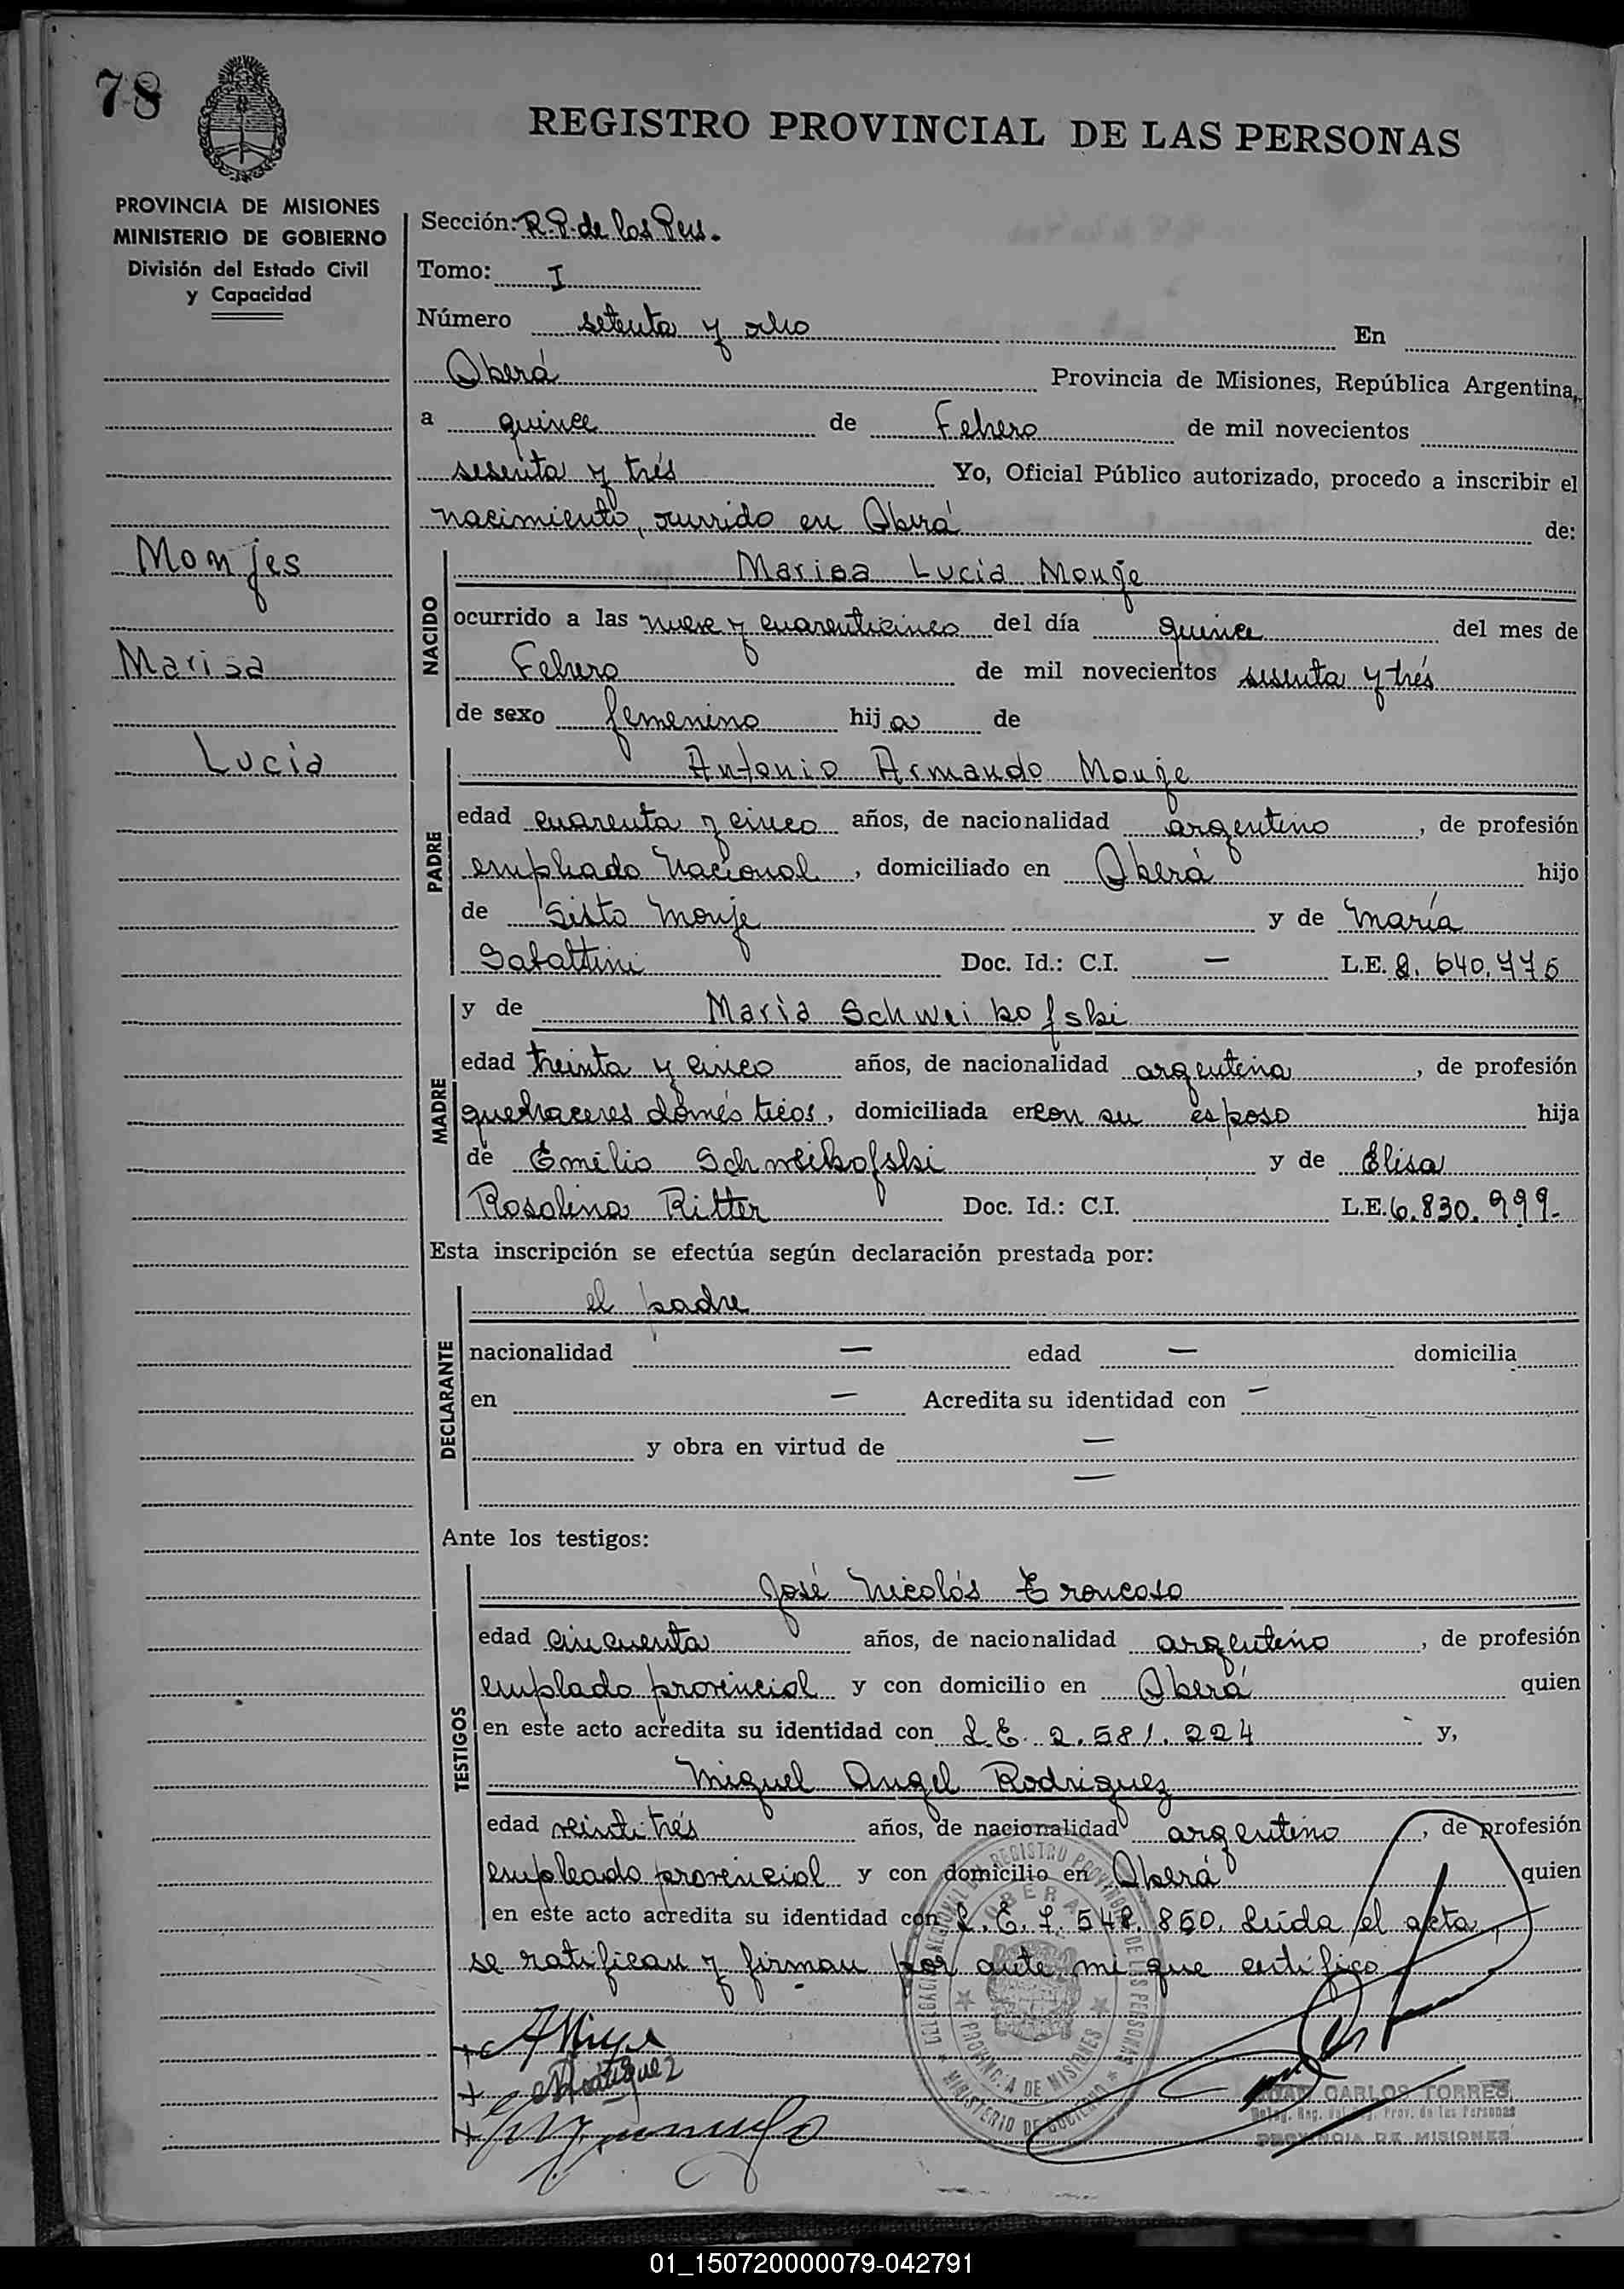 78
REGISTRO PROVINCIAL DE LAS PERSONAS
PROVINCIA DE MISIONES
MINISTERIO DE GOBIERNO
División del Estado Civil
y Capacidad
Sección: R.P. de las Pers.
Tomo: I
Número setenta y ocho En
Oberá Provincia de Misiones, República Argentina,
a quince de Febrero de mil novecientos
sesenta y trés Yo, Oficial Público autorizado, procedo a inscribir el
nacimiento, ocurrido en Oberá de:
Monjes
Marisa
Lucia
NACIDO
Marisa Lucia Monje
ocurrido a las nueve y cuarenticinco del día quince del mes de
Febrero de mil novecientos sesenta y trés
de sexo femenino hija de
PADRE
Antonio Armando Monje
edad cuarenta y cinco años, de nacionalidad argentino, de profesión
empleado Nacional, domiciliado en Oberá hijo
de Sisto Monje y de María
Sabattini Doc. Id.: C.I. — L.E. 2.640.775
MADRE
y de María Schweikofski
edad treinta y cinco años, de nacionalidad argentina, de profesión
quehaceres domésticos, domiciliada en con su esposo hija
de Emilio Schweikofski y de Elisa
Rosalina Ritter Doc. Id.: C.I. L.E. 6.830.999-
Esta inscripción se efectúa según declaración prestada por:
DECLARANTE
el padre
nacionalidad — edad — domicilia
en — Acredita su identidad con —
y obra en virtud de —
—
Ante los testigos:
TESTIGOS
José Nicolás Troncoso
edad cincuenta años, de nacionalidad argentino, de profesión
emplado provincial y con domicilio en Oberá quien
en este acto acredita su identidad con L.E. 2.581.224 y,
Miguel Angel Rodriguez
edad veintitrés años, de nacionalidad argentino, de profesión
empleado provincial y con domicilio en Oberá quien
en este acto acredita su identidad con L.E. 7.548.850. Leida el acta,
se ratifican y firman por ante mi que certifico
Rodriguez
DELEGACION REGISTRO PROVINCIAL DE LAS PERSONAS
OBERA
PROVINCIA DE MISIONES
MINISTERIO DE GOBIERNO
JUAN CARLOS TORRES
Prov. de las Personas
PROVINCIA DE MISIONES
01_150720000079-042791